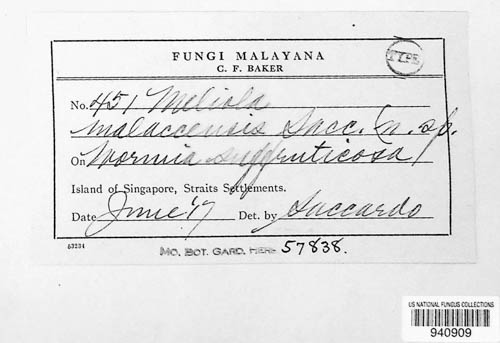 FUNGI MALAYANA
C. F. BAKER
TYPE
No. 451 Meliola
malaccensis Sacc. (n. sp.
On Wormia suffruticosa
Island of Singapore, Straits Settlements.
Date June '17 Det. by Saccardo
63234
MO. BOT. GARD. HERB. 57838.
US NATIONAL FUNGUS COLLECTIONS
940909